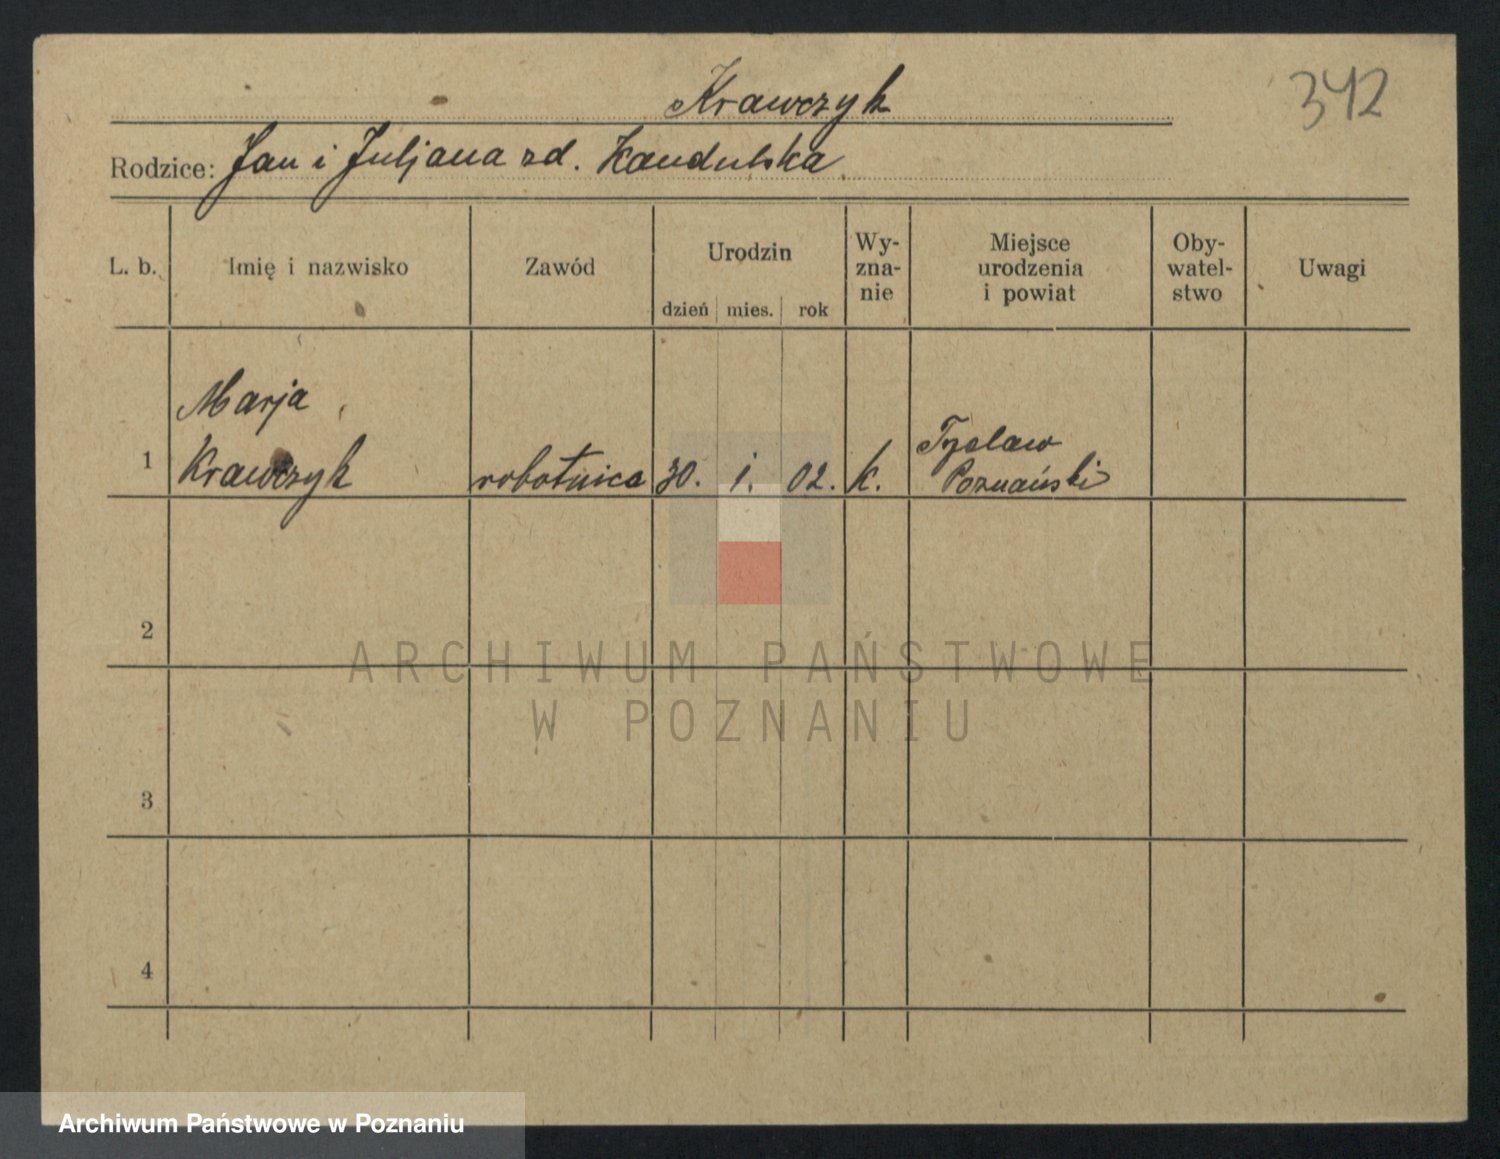 Krawczyk
342
Rodzice: Jan i Juljana zd. Kandulska
L. b. Imię i nazwisko Zawód Urodzin dzień mies. rok Wy-zna-nie Miejsce urodzenia i powiat Oby-watel-stwo Uwagi
Marja
1 Krawczyk robotnica 30. 1. 02. k.
Poznański
2
ARCHIWUM PAŃSTWOWE
W POZNANIU
3
4
Archiwum Państwowe w Poznaniu